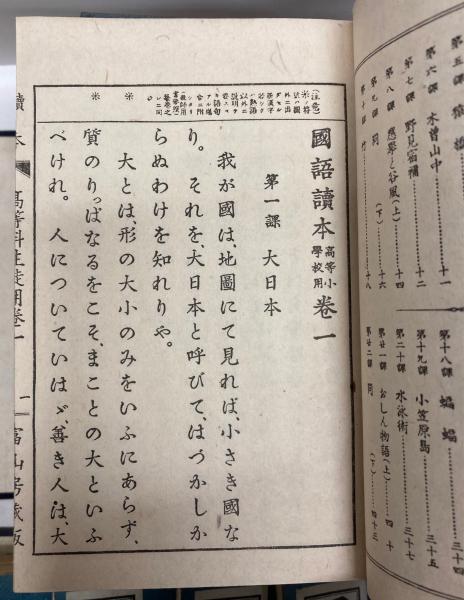 第五課
第六課 木曽山中 十一
第七課 野見宿禰 十二
第八課 應擧と谷風(上) 十四
第九課 同 (下) 十六
十八
第十八課 蝙蝠 三十四
第十九課 小笠原島 三十五
第二十課 水泳術 三十七
第廿一課 おしん物語(上) 四十
第廿二課 同 (下) 四十三
國語讀本 高等小學校用 卷一
第一課 大日本
我が國は、地圖にて見れば、小さき國な
り。それを、大日本と呼びて、はづかしか
らぬわけを知れりや。
※ 大とは、形の大小のみをいふにあらず、
※ 質のりっぱなるをこそ、まことの大といふ
べけれ。人についていはゞ、善き人は、大
讀本 高等科生徒用卷一 一 冨山房藏版